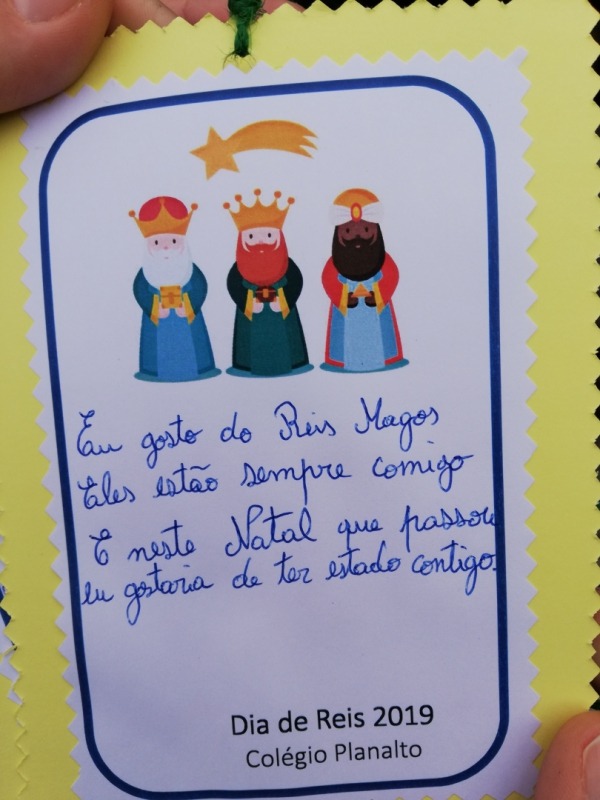 Eu gosto do Reis Magos
Eles estão sempre comigo
E neste Natal que passou
eu gostaria de ter estado contigo.
Dia de Reis 2019
Colégio Planalto